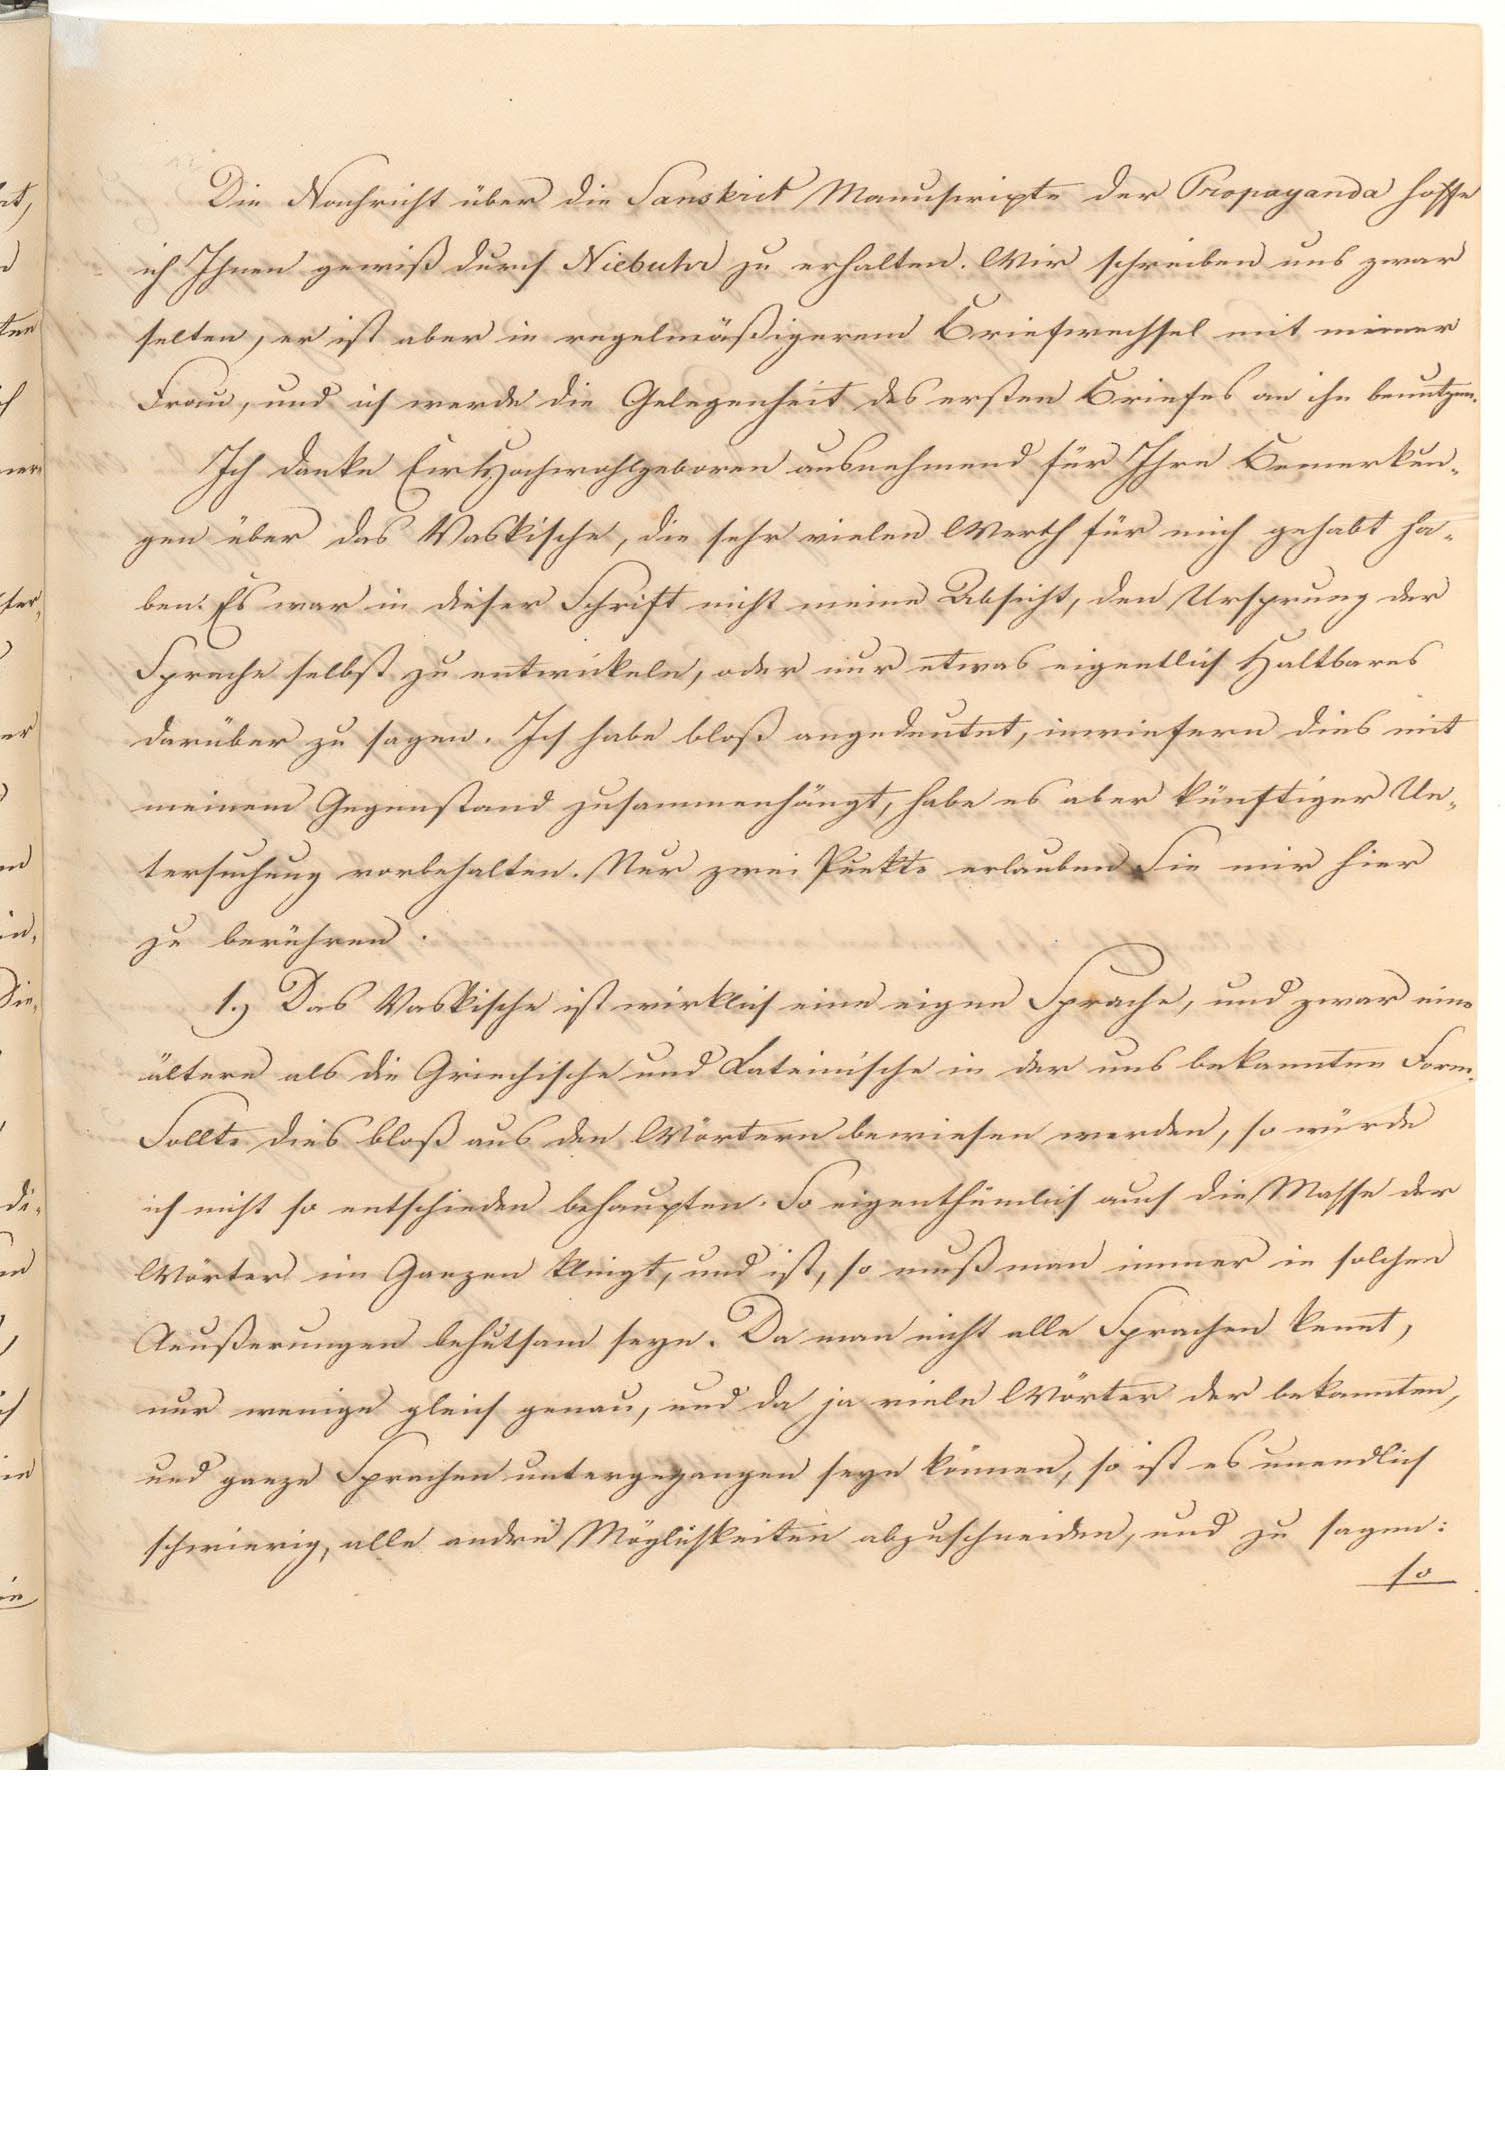 Die Nachricht über die Sanskrit Manuscripte der Propaganda hoffe
ich Ihnen gewiß durch Niebuhr zu erhalten. Wir schreiben uns zwar
selten, er ist aber in regelmäßigerem Briefwechsel mit meiner
Frau, und ich werde die Gelegenheit des ersten Briefes an ihn benutzen.
Ich danke Ew. Hochwohlgeboren ausnehmend für Ihre Bemerkun-
gen über das Vaskische, die sehr vielen Werth für mich gehabt ha-
ben. Es war in dieser Schrift nicht meine Absicht, den Ursprung der
Sprache selbst zu entwickeln, oder nur etwas eigentlich Haltbares
darüber zu sagen. Ich habe bloß angedeutet, inwiefern dies mit
meinem Gegenstand zusammenhängt, habe es aber künftiger Un-
tersuchung vorbehalten. Nur zwei Punkte erlauben Sie mir hier
zu berühren.
1.) Das Vaskische ist wirklich eine eigne Sprache, und zwar eine
ältere als die Griechische und Lateinische in der uns bekannten Form.
Sollte dies bloß aus den Wörtern bewiesen werden, so würde
ich nicht so entschieden behaupten. So eigenthümlich auch die Masse der
Wörter im Ganzen klingt, und ist, so muß man immer in solchen
Aeußerungen behutsam seyn. Da man nicht alle Sprachen kennt,
nur wenige gleich genau, und da ja viele Wörter der bekannten,
und ganze Sprachen untergegangen seyn können, so ist es unendlich
schwierig, alle andre Möglichkeiten abzuschneiden, und zu sagen:
so